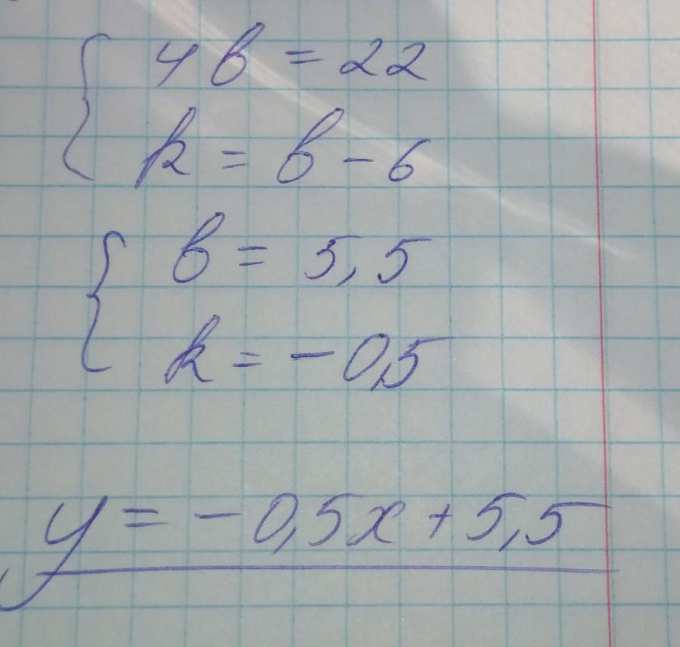 4в = 22
k = в - 6
в = 5,5
k = -0,5
y = -0,5x + 5,5